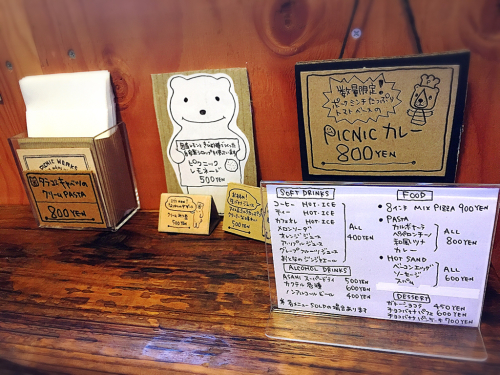 PICNIC WORKS
クリームPASTA
800YEN
ピクニック
レモネード
500YEN
数量限定!
ポークミンチたっぷり
トマトベースの
PICNIC カレー
800YEN
SOFT DRINKS
コーヒー HOT・ICE
ティー HOT・ICE
カフェオレ HOT・ICE
メロンソーダ
オレンジジュース
アップルジュース
グレープフルーツジュース
ジンジャエール
ALL
400YEN
ALCOHOL DRINKS
ASAHI スーパードライ 500YEN
カクテル各種 600YEN
ノンアルコールビール 400YEN
※各メニューSOLDの場合あります
FOOD
● 8インチ MIX PIZZA 900YEN
● PASTA
カルボナーラ
ペペロンチーノ
和風ツナ
カレー
ALL
800YEN
● HOT SAND
ベーコンエッグ
ソーセージ
スパム
ALL
600YEN
DESSERT
ガトーショコラ 450YEN
チョコバナナパフェ 600YEN
チョコバナナパンケーキ 700YEN